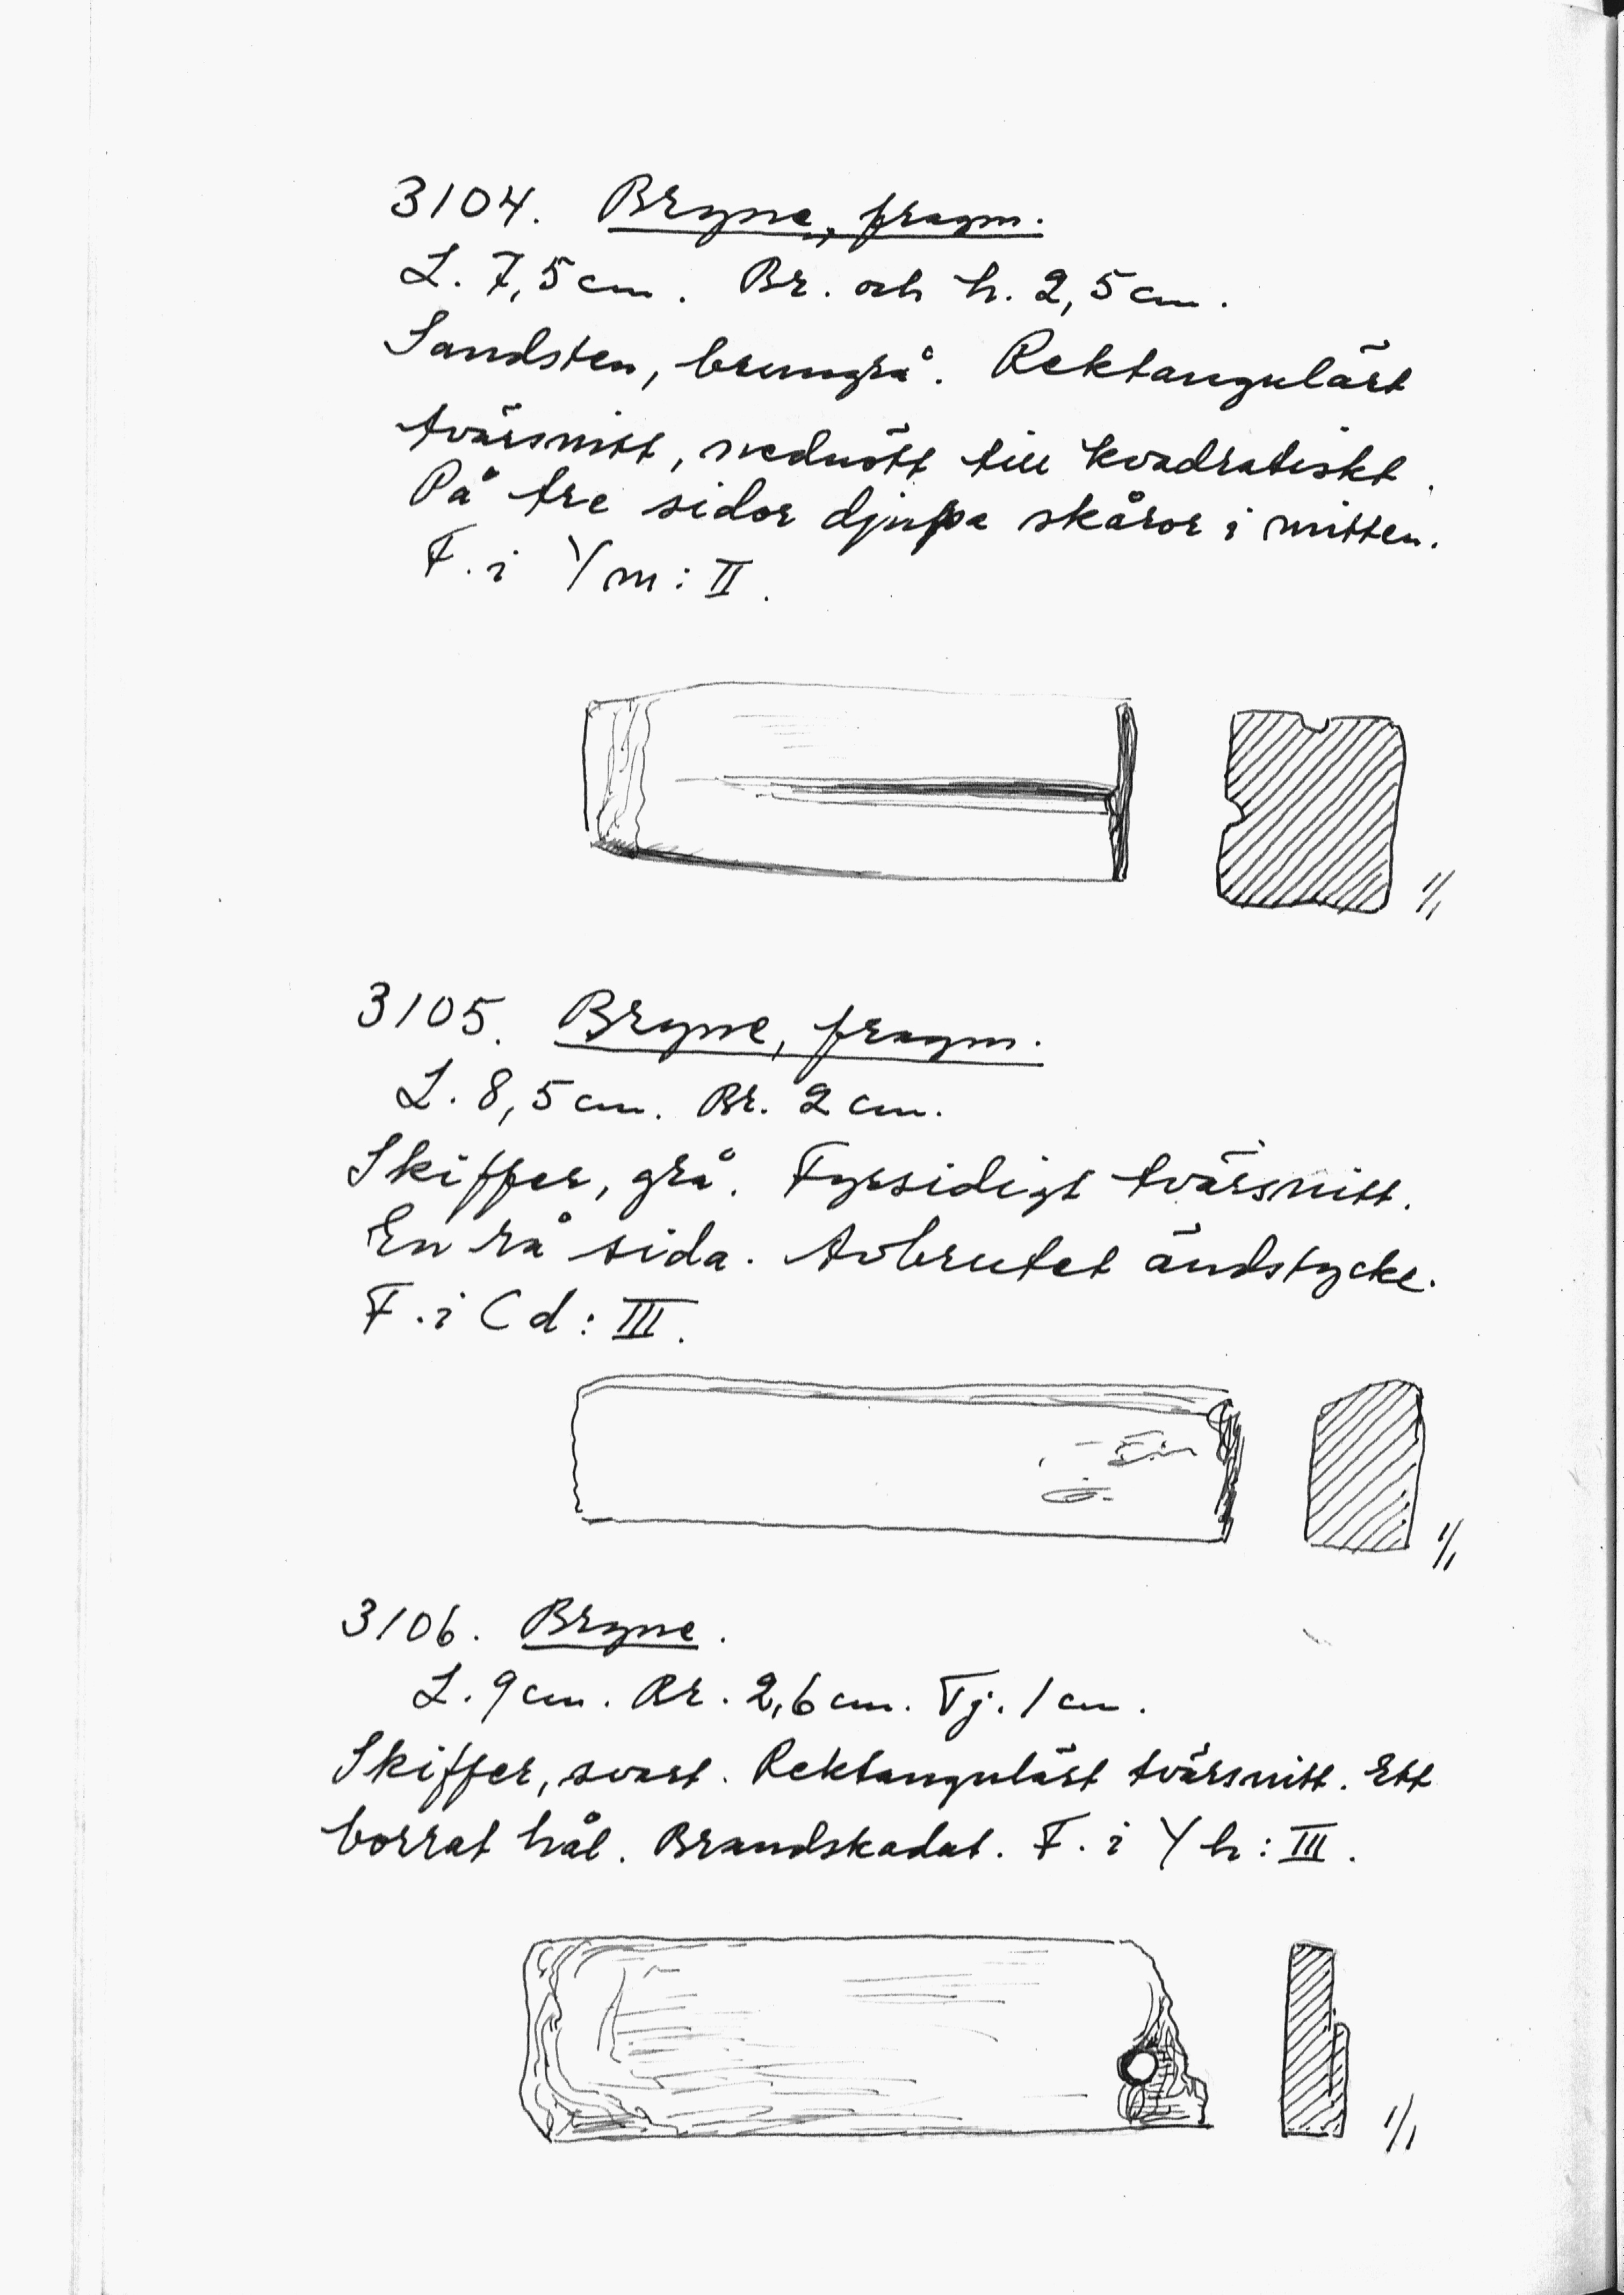 3104. Bryne, fragm.
L. 7,5 cm. Br. och h. 2,5 cm.
Sandsten, brungrå. Rektangulärt
tvärsnitt, nednött till kvadratiskt.
På tre sidor djupa skåror i mitten.
F. i Ym: II.
1/1
3105. Bryne, fragm.
L. 8,5 cm. Br. 2 cm.
Skiffer, grå. Fyrsidigt tvärsnitt.
En rå sida. Avbrutet ändstycke.
F. i Cd: III.
1/1
3106. Bryne.
L. 9 cm. Br. 2,6 cm. Tj. 1 cm.
Skiffer, svart. Rektangulärt tvärsnitt. Ett
borrat hål. Brandskadat. F. i Yh: III.
1/1